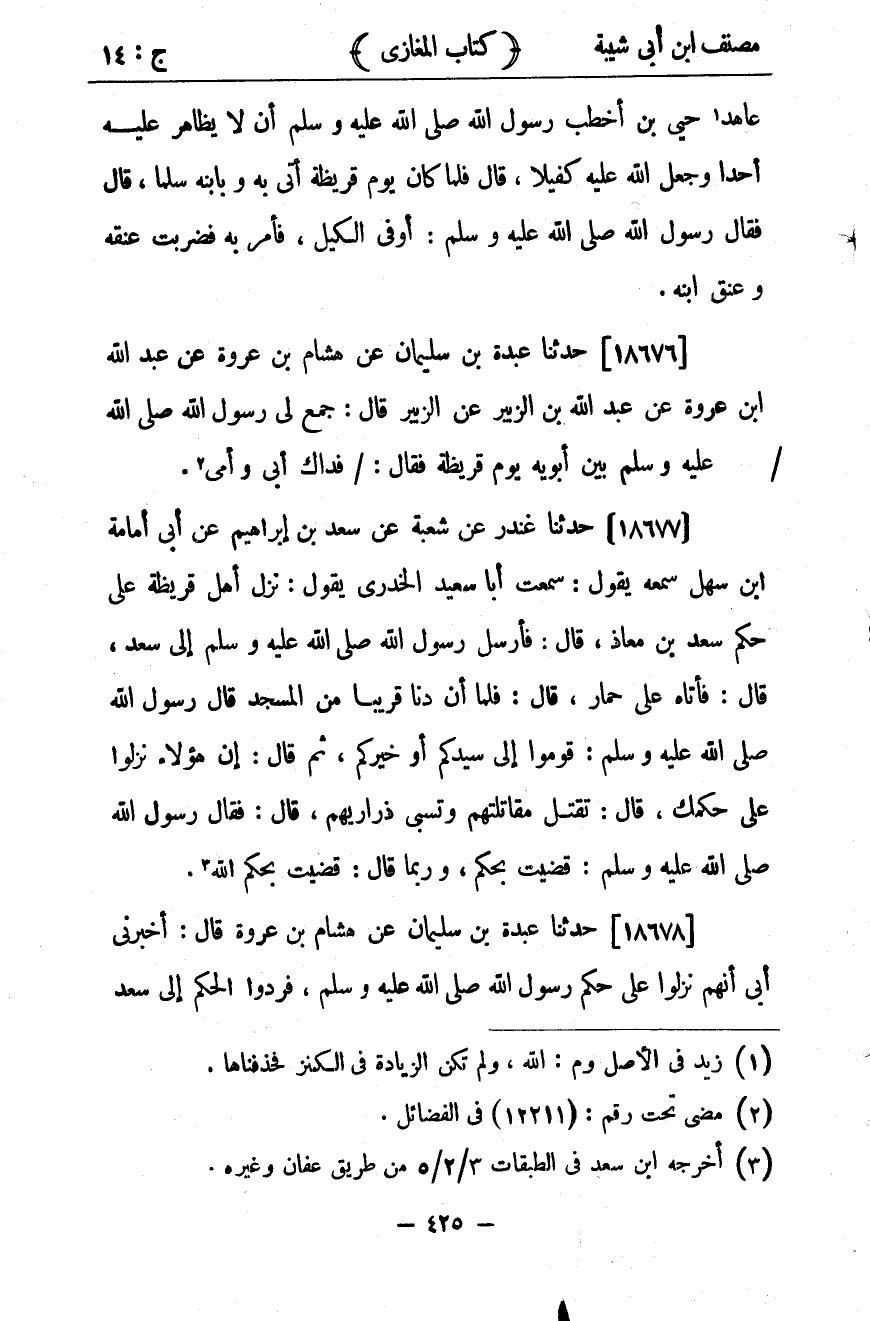 مصنف ابن أبى شيبة ﴿ كتاب المغازى ﴾ ج : ١٤
عاهد١ حيي بن أخطب رسول الله صلى الله عليه و سلم أن لا يظاهر عليــه
أحدا وجعل الله عليه كفيلا ، قال فلما كان يوم قريظة أتى به و بابنه سلما ، قال
فقال رسول الله صلى الله عليه و سلم : أوفى الكيل ، فأمر به فضربت عنقه
و عنق ابنه .
[١٨٦٧٦] حدثنا عبدة بن سليمان عن هشام بن عروة عن عبد الله
ابن عروة عن عبد الله بن الزبير عن الزبير قال : جمع لى رسول الله صلى الله
عليه و سلم بين أبويه يوم قريظة فقال : / فداك أبى و أمى٢ . /
[١٨٦٧٧] حدثنا غندر عن شعبة عن سعد بن إبراهيم عن أبى أمامة
ابن سهل سمعه يقول : سمعت أبا سعيد الخدرى يقول : نزل أهل قريظة على
حكم سعد بن معاذ ، قال : فأرسل رسول الله صلى الله عليه و سلم إلى سعد ،
قال : فأتاه على حمار ، قال : فلما أن دنا قريبـا من المسجد قال رسول الله
صلى الله عليه و سلم : قوموا إلى سيدكم أو خيركم ، ثم قال : إن هؤلاء نزلوا
على حكمك ، قال : تقتـل مقاتلتهم وتسبى ذراريهم ، قال : فقال رسول الله
صلى الله عليه و سلم : قضيت بحكم ، و ربما قال : قضيت بحكم الله٣ .
[١٨٦٧٨] حدثنا عبدة بن سليمان عن هشام بن عروة قال : أخبرنى
أبى أنهم نزلوا على حكم رسول الله صلى الله عليه و سلم ، فردوا الحكم إلى سعد
(١) زيد فى الأصل وم : الله ، ولم تكن الزيادة فى الكنز فحذفناها .
(٢) مضى تحت رقم : (١٢٢١١) فى الفضائل .
(٣) أخرجه ابن سعد فى الطبقات ٥/٢/٣ من طريق عفان وغيره .
– ٤٢٥ –